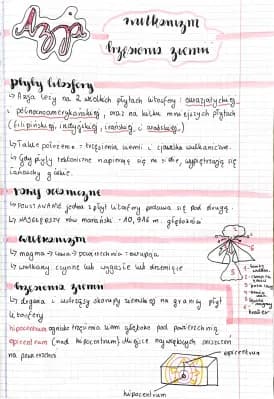 Azja
wulkanizm
trzęsienia ziemi
płyty litosfery
↳ Azja leży na 2 wielkich płytach litosfery: euroazjatyckiej
i północnoamerykańskiej, oraz na kilku mniejszych płytach
(filipińskiej, indyjskiej, irańskiej i arabskiej)
↳ Takie położenie = trzęsienia ziemi i zjawiska wulkaniczne.
↳ Gdy płyty tektoniczne napierają na siebie, wypiętrzają się
łańcuchy górskie.
rowy oceaniczne
↳ POWSTAWANIE jedna z płyt litosfery podsuwa się pod drugą.
↳ NAJGŁĘBSZY rów mariański - głębokość
wulkanizm
↳ magma → lawa → powierzchnia = erupcja
↳ wulkany czynne lub wygasłe lub drzemiące
krater
trzęsienia ziemi
↳ drgania i wstrząsy skorupy ziemskiej na granicy płyt
litosfery
hipocentrum ognisko trzęsienia ziemi głęboko pod powierzchnią
epicentrum (nad hipocentrum) miejsce największych zniszczeń
na powierzchni
epicentrum
hipocentrum